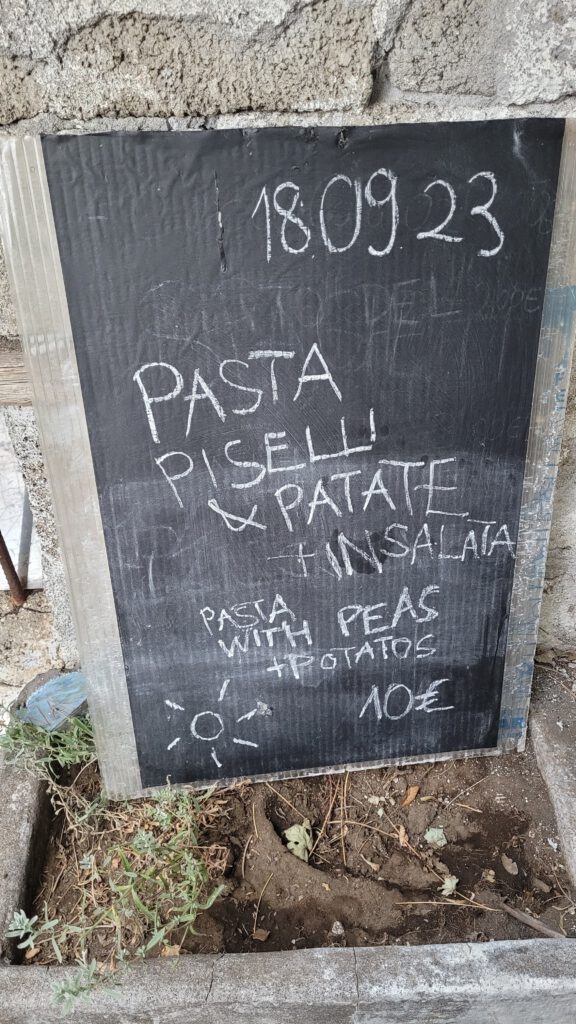 18.09.23
PASTA
PISELLI
& PATATE
+ INSALATA
PASTA
WITH PEAS
+ POTATOS
10€